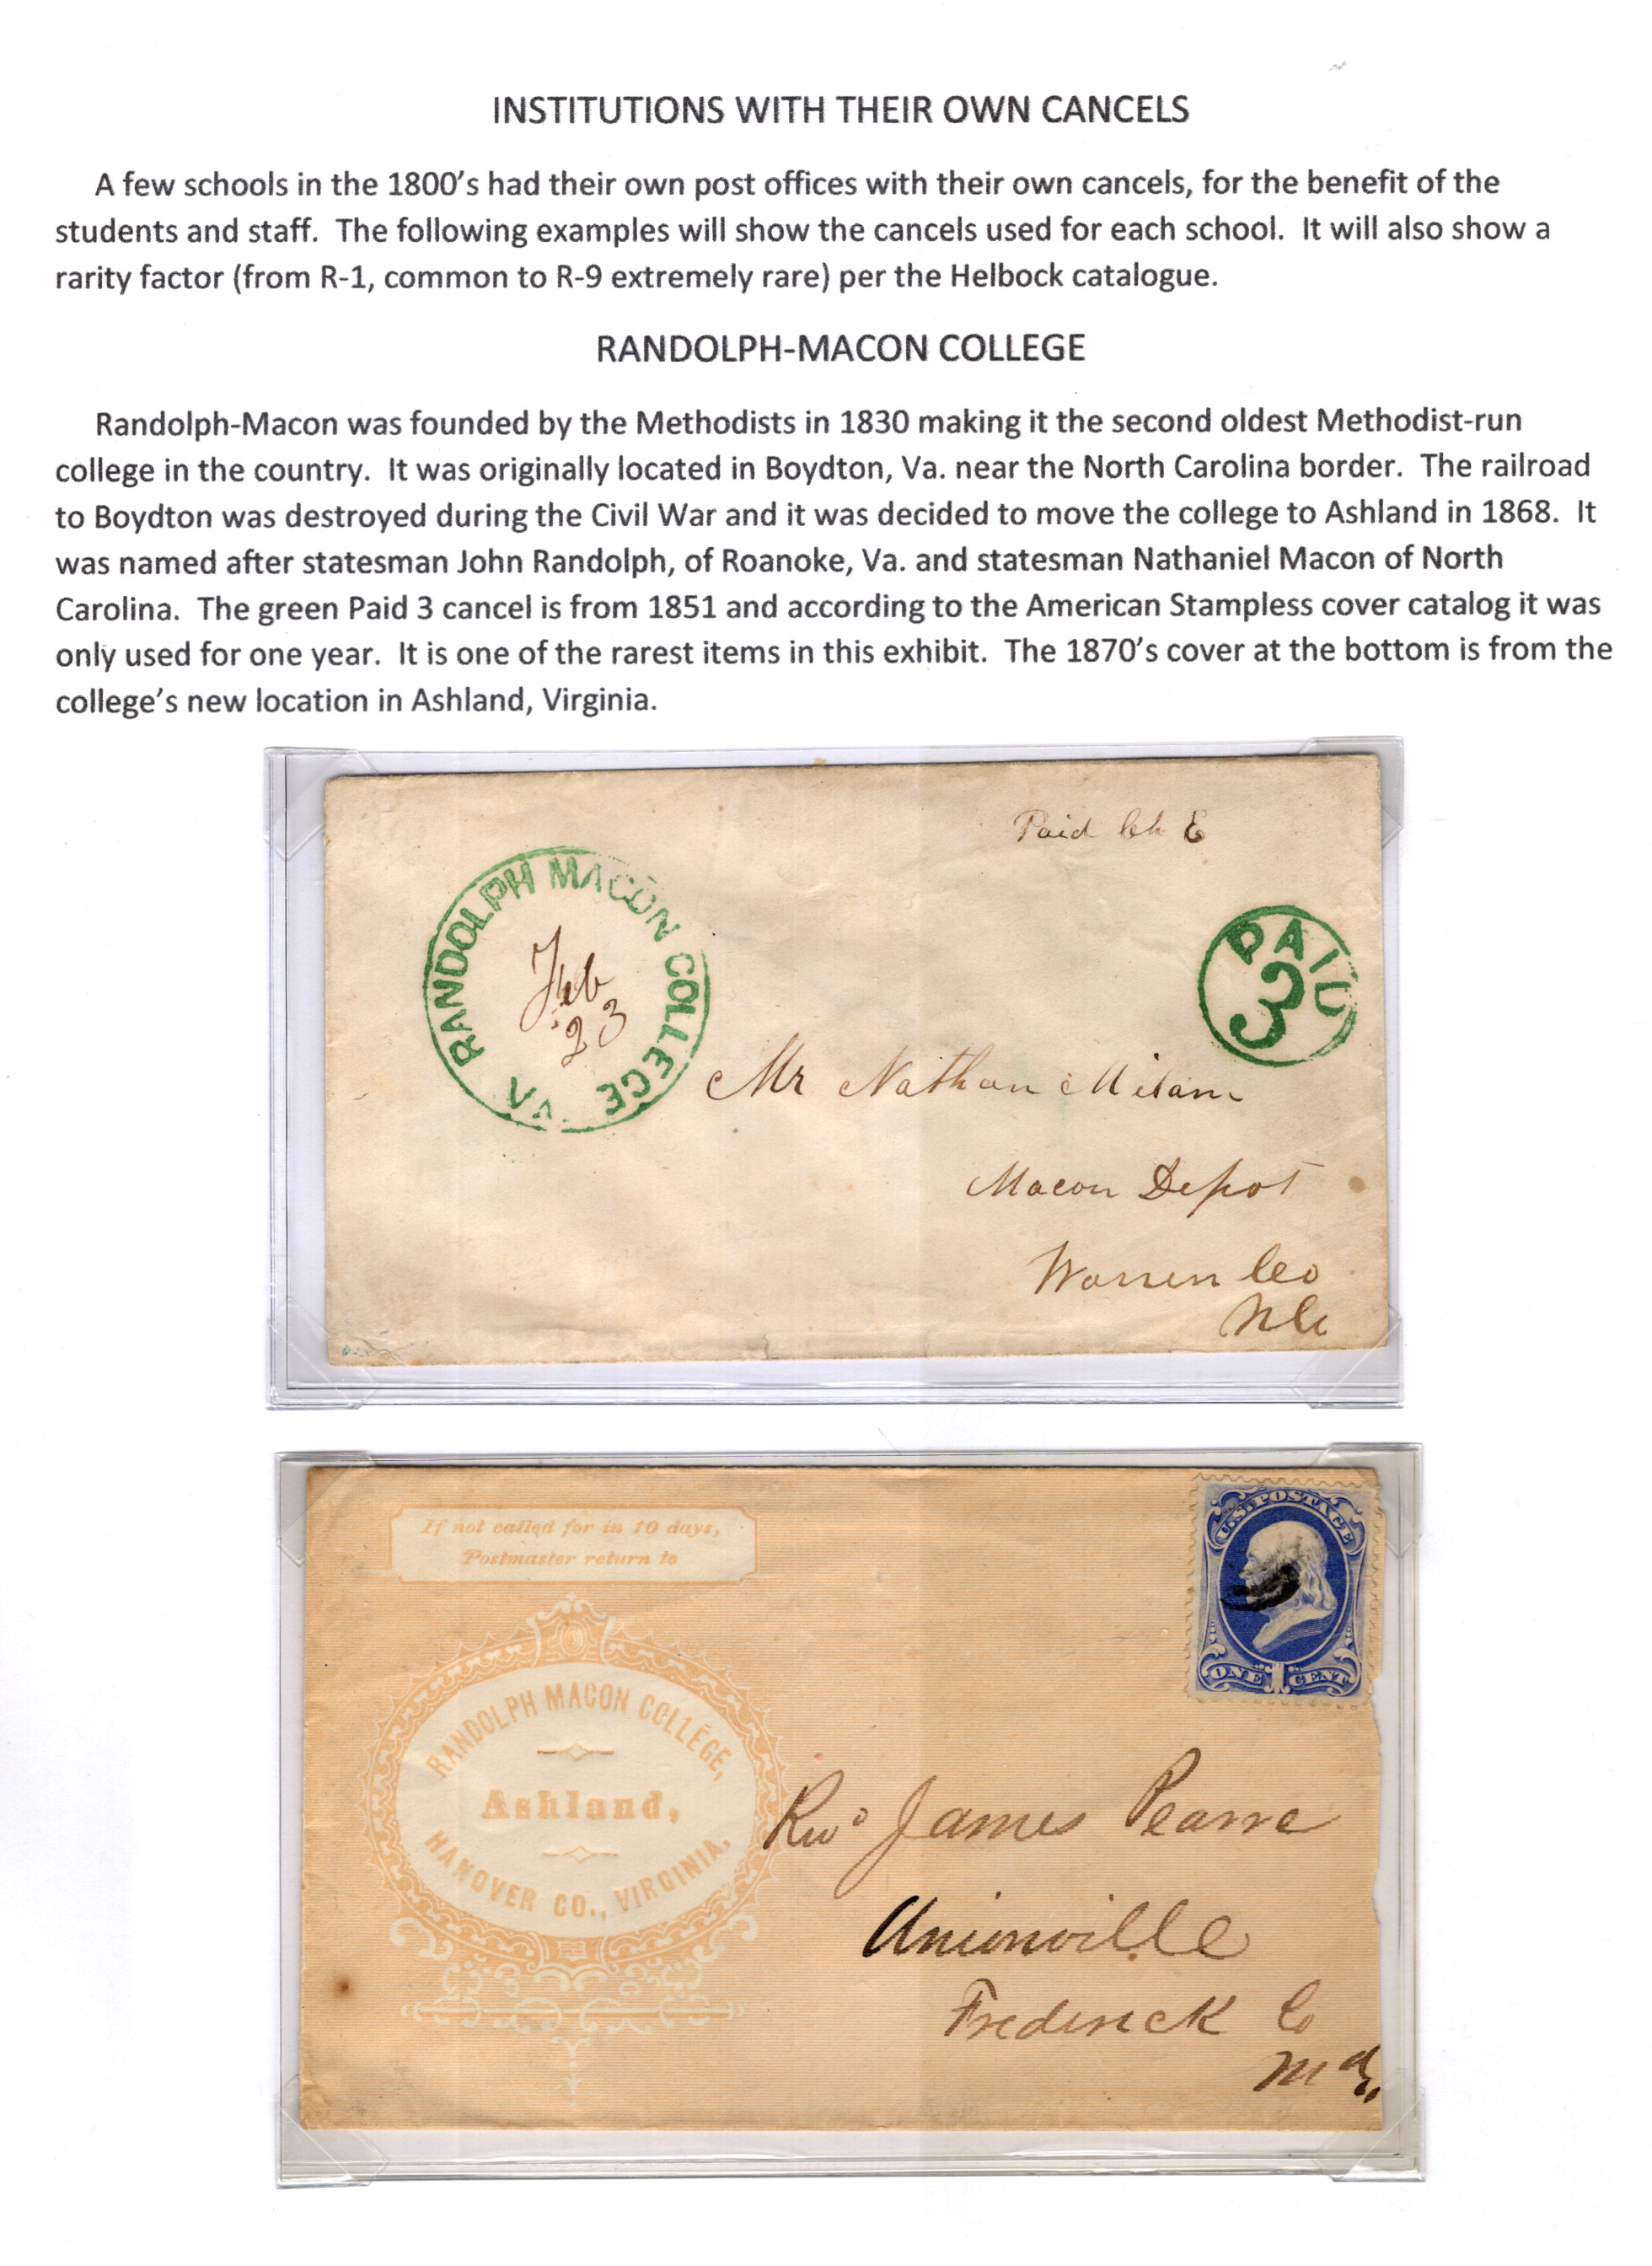 INSTITUTIONS WITH THEIR OWN CANCELS
A few schools in the 1800's had their own post offices with their own cancels, for the benefit of the
students and staff. The following examples will show the cancels used for each school. It will also show a
rarity factor (from R-1, common to R-9 extremely rare) per the Helbock catalogue.
RANDOLPH-MACON COLLEGE
Randolph-Macon was founded by the Methodists in 1830 making it the second oldest Methodist-run
college in the country. It was originally located in Boydton, Va. near the North Carolina border. The railroad
to Boydton was destroyed during the Civil War and it was decided to move the college to Ashland in 1868. It
was named after statesman John Randolph, of Roanoke, Va. and statesman Nathaniel Macon of North
Carolina. The green Paid 3 cancel is from 1851 and according to the American Stampless cover catalog it was
only used for one year. It is one of the rarest items in this exhibit. The 1870's cover at the bottom is from the
college's new location in Ashland, Virginia.
Paid Ch E
RANDOLPH MACON COLLEGE VA
Feb
23
PAID
3
Mr Nathan Milam
Macon Depot
Warren Co
NC
If not called for in 10 days,
Postmaster return to
U.S. POSTAGE
ONE 1 CENT
RANDOLPH MACON COLLEGE,
Ashland,
HANOVER CO., VIRGINIA.
Rev James Pearre
Unionville
Frederick Co
Md.